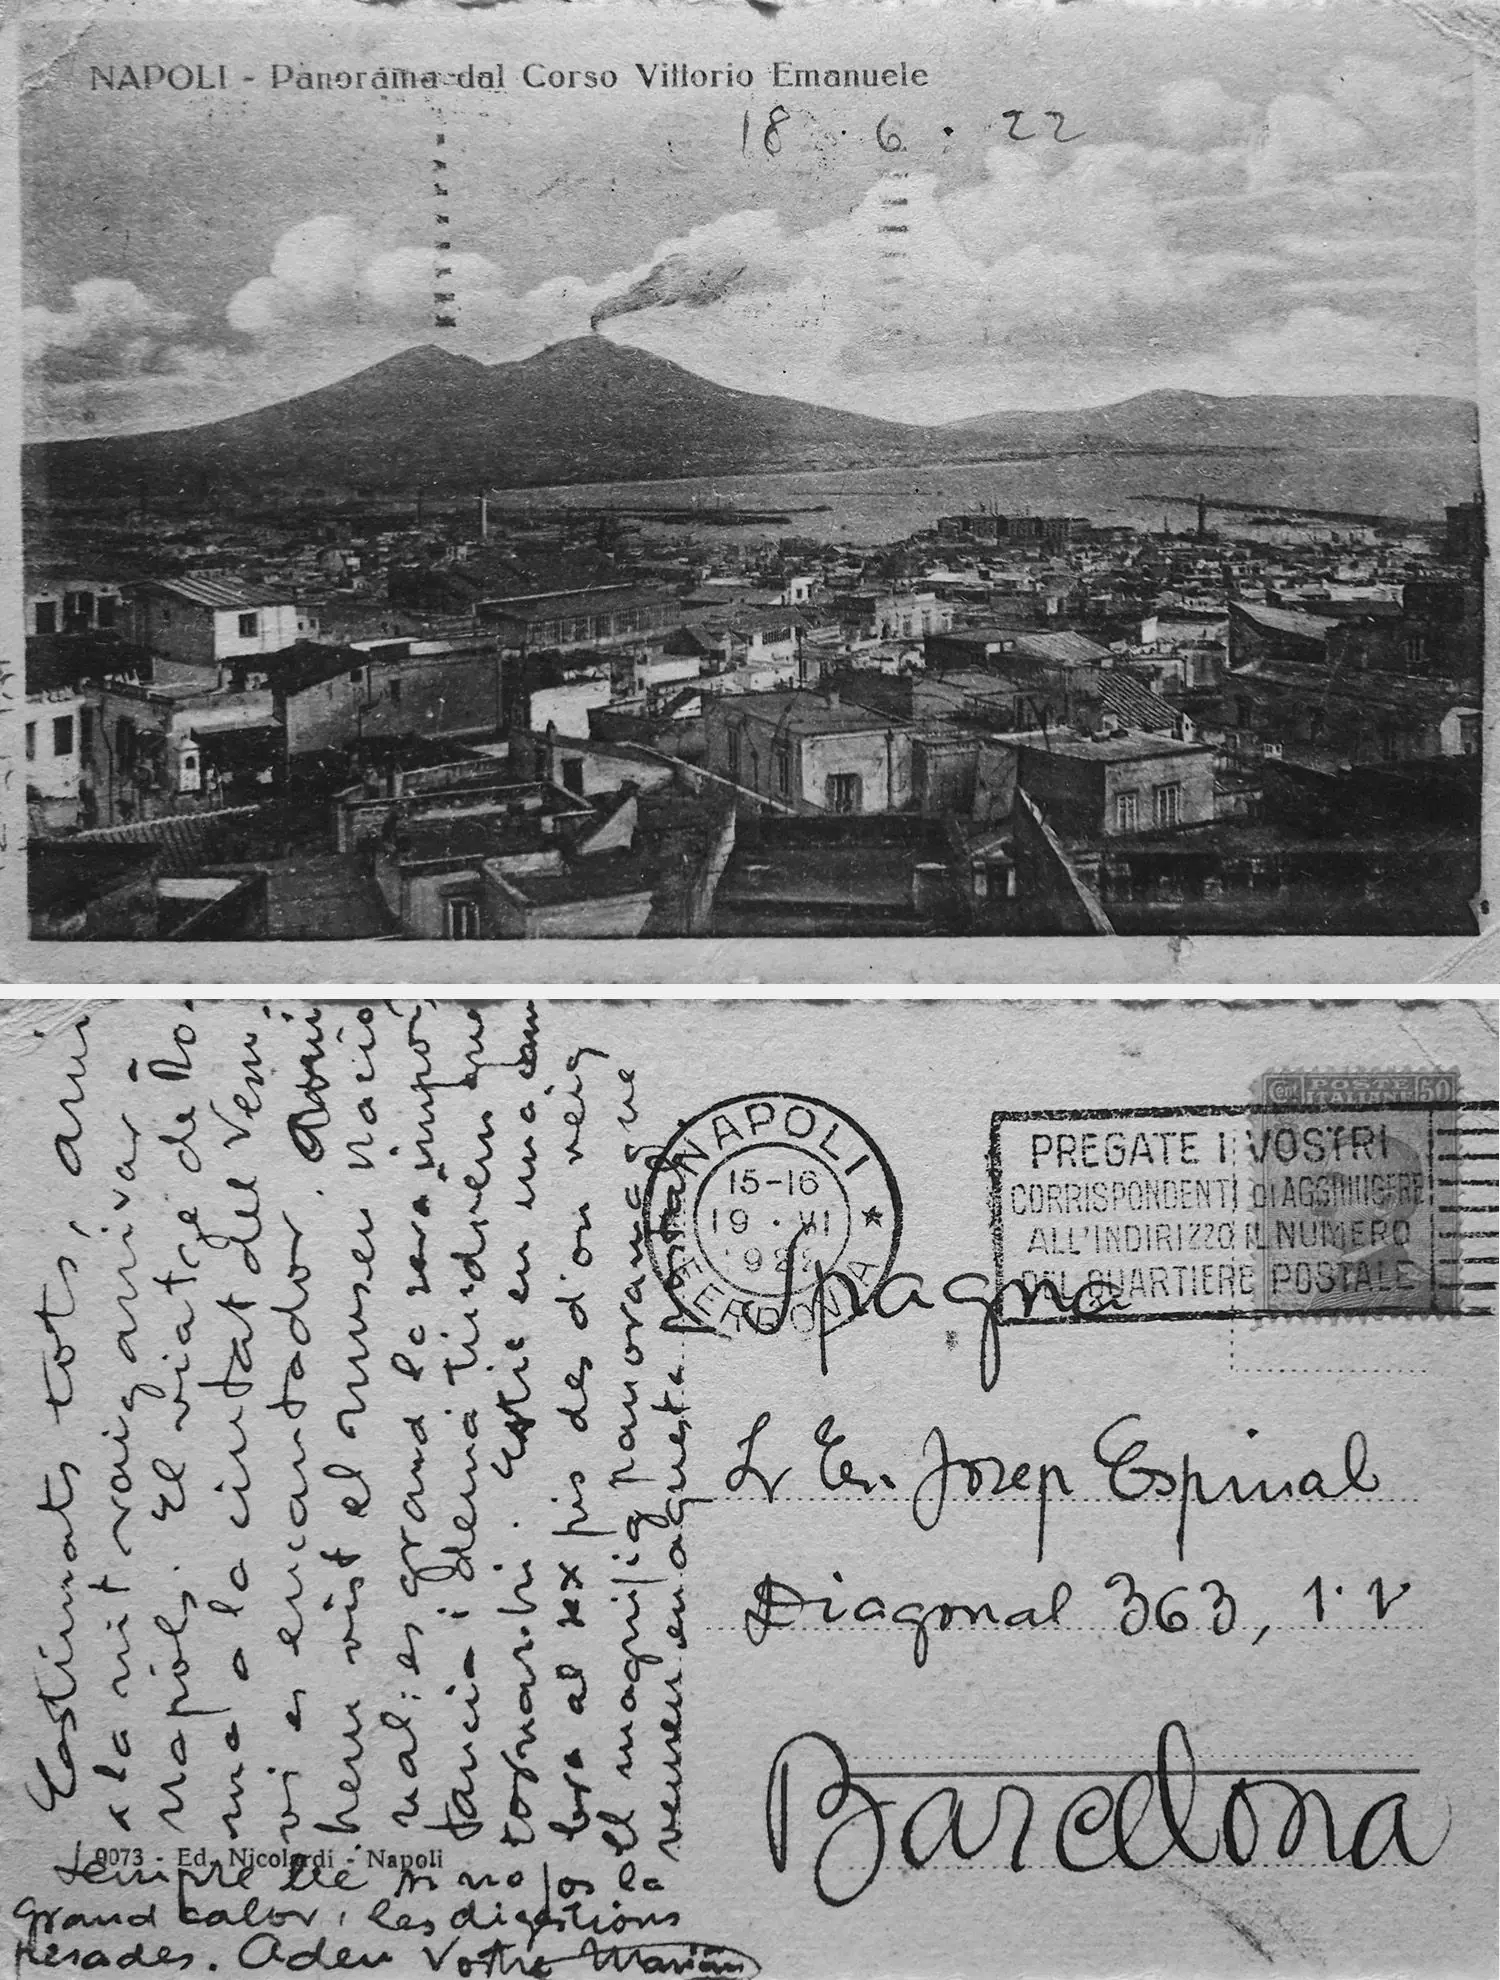 NAPOLI - Panorama dal Corso Vittorio Emanuele
18 · 6 · 22
Estimats tots, ahir
a la nit vaig arrivar a
Napols. El viatge de Ro-
ma a la ciutat del Vesu-
vi es encantador. Avui
hem vist el museu nacio
nal: es grand la seva impor
tancia i demà tindrem que
tornar-hi. Estic en una cam
bra al sex pis des d'on veig
el magnifiq panorama que
veueu en aquesta postal.
Sempre be si no fos la
grand calor i les digestions
pesades. Adeu Vostre Marián
9073 - Ed. Nicolardi - Napoli
NAPOLI
15-16
19 · VI
1922
FERROVIA
*
PREGATE I VOSTRI
CORRISPONDENTI DI AGGIUNGERE
ALL'INDIRIZZO IL NUMERO
DEL QUARTIERE POSTALE
Cent POSTE ITALIANE 50
Spagna
Sr En Josep Espinal
Diagonal 363, 1·
Barcelona